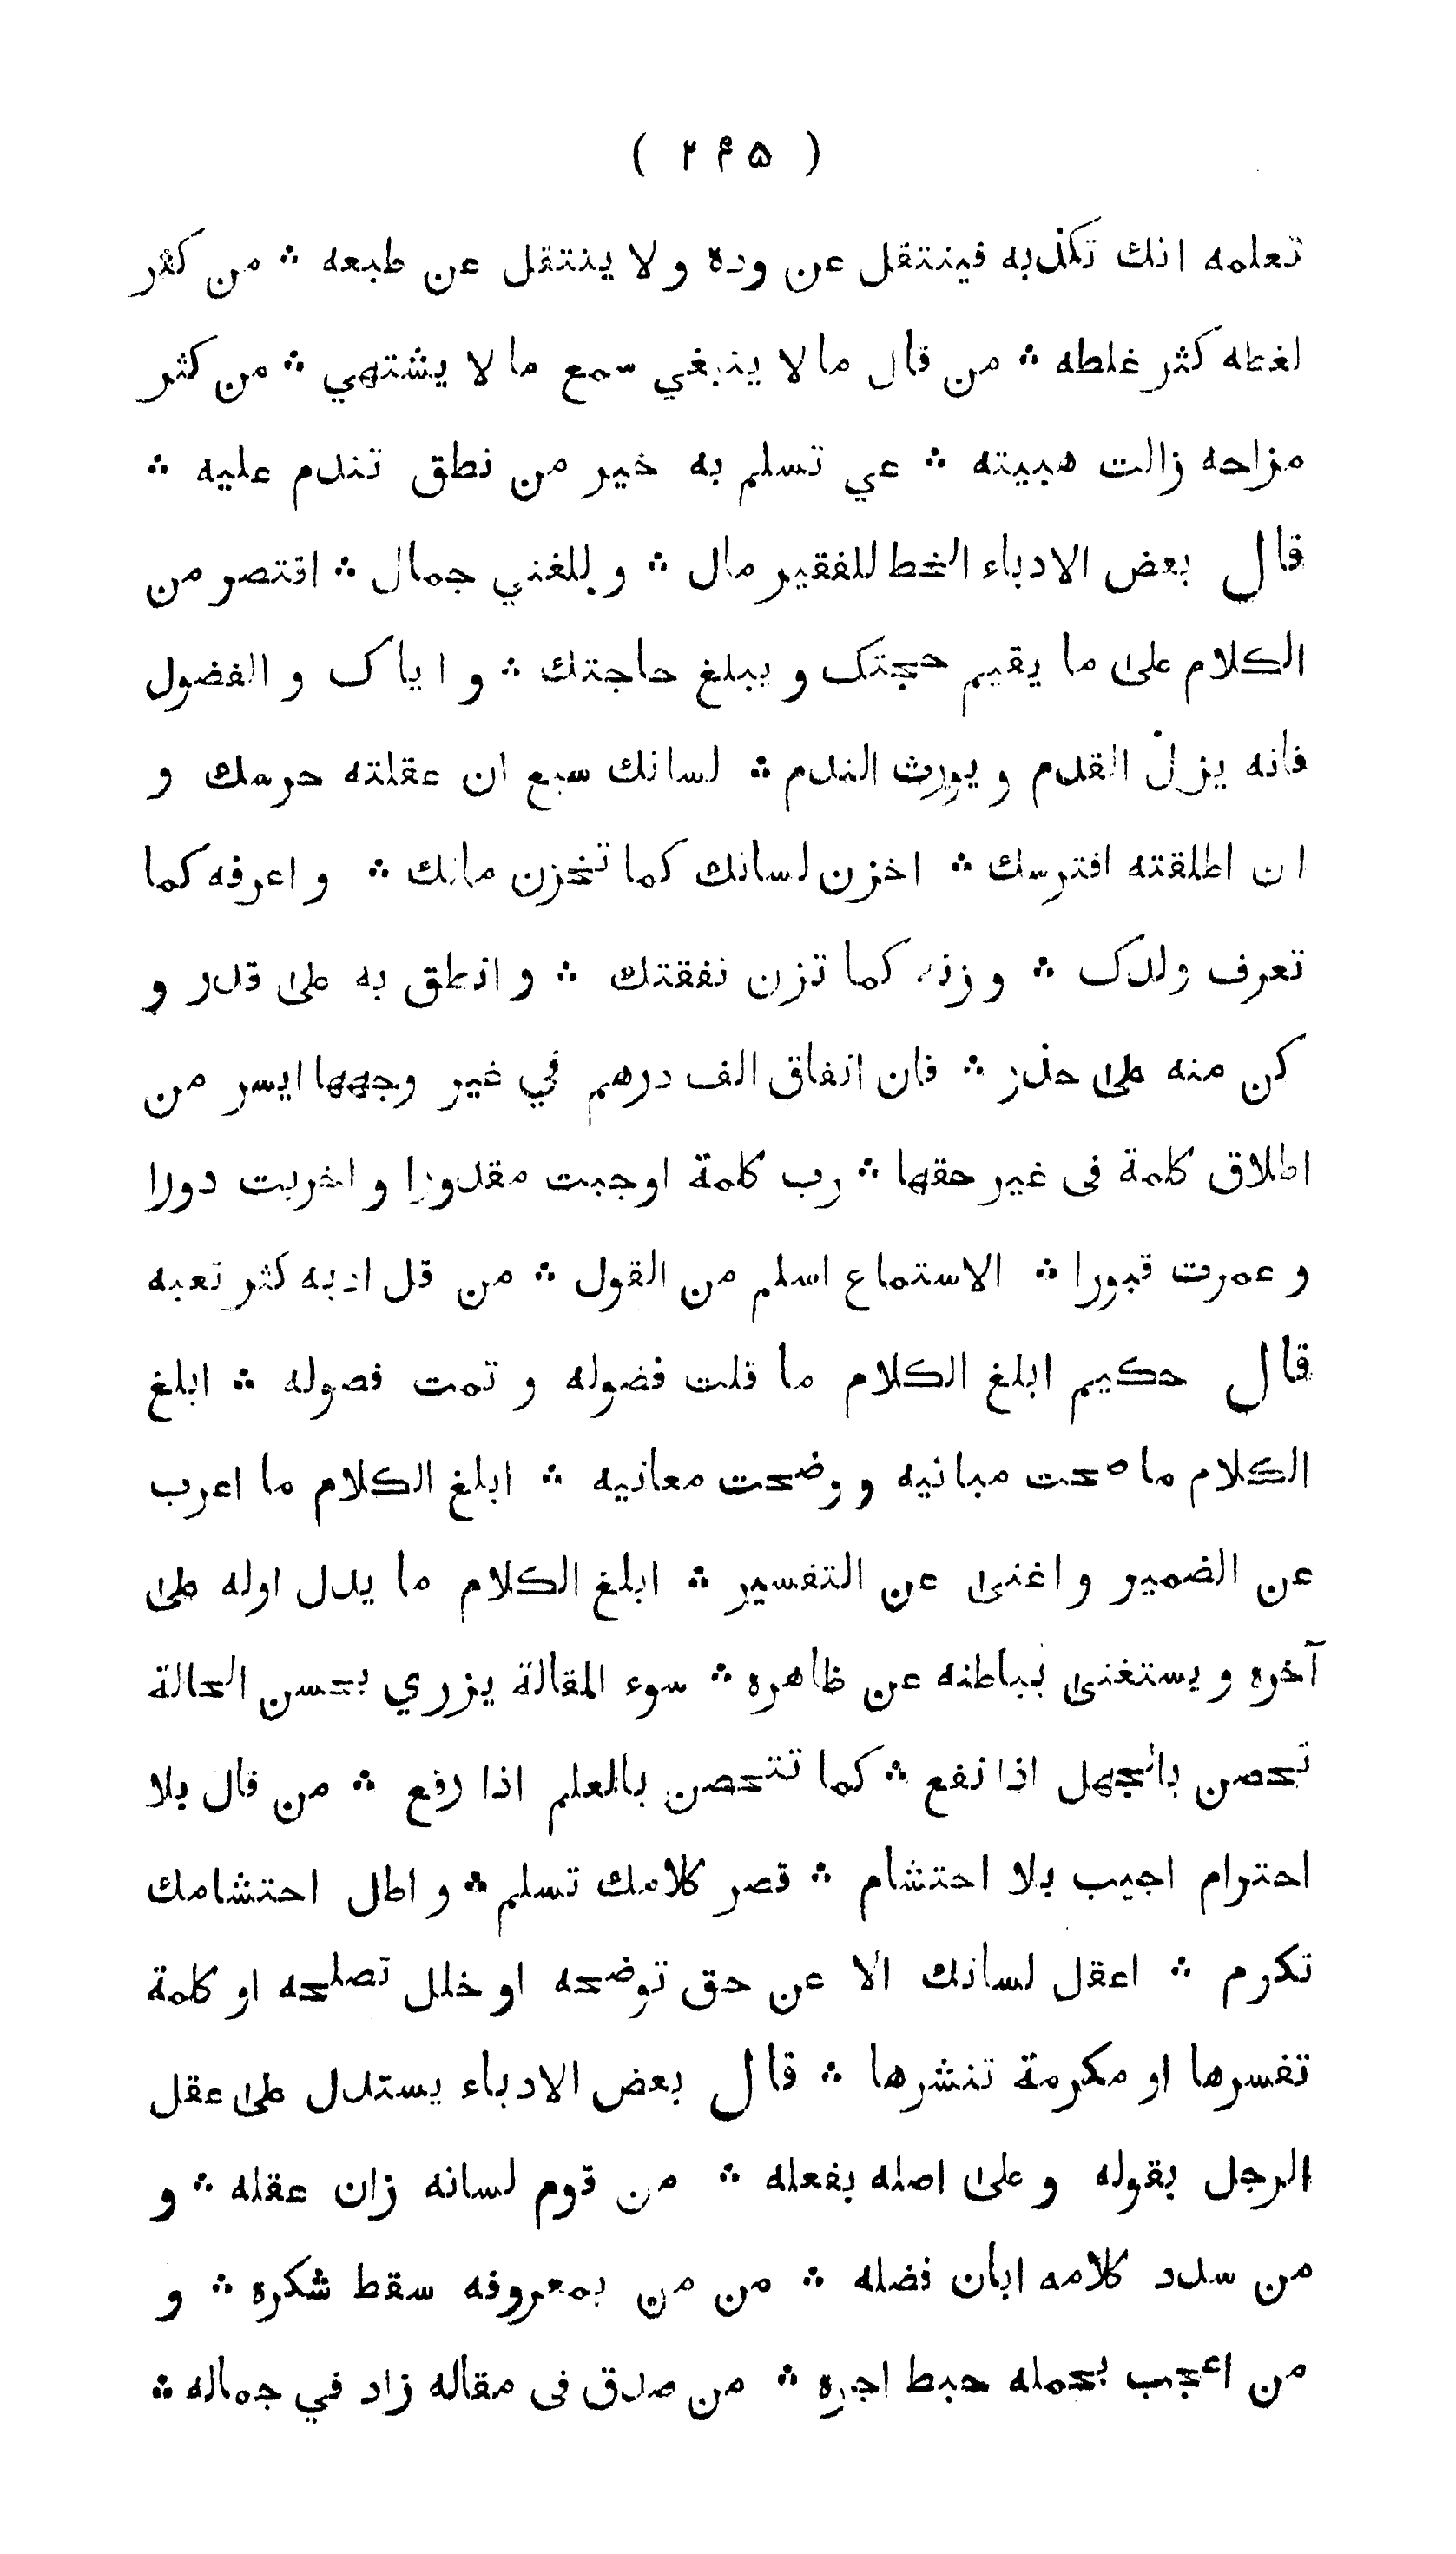 ( ٢۴۵ )
تعلمه انك تكذبه فينتقل عن وده و لا ينتقل عن طبعه ⁂ من كثر
لغطه كثر غلطه ⁂ من قال ما لا ينبغي سمع ما لا يشتهي ⁂ من كثر
مزاحه زالت هيبته ⁂ عي تسلم به خير من نطق تندم عليه ⁂
قال بعض الادباء الخط للفقير مال ⁂ و للغني جمال ⁂ اقتصر من
الكلام على ما يقيم حجتك و يبلغ حاجتك ⁂ و اياك و الفضول
فانه يزل القدم و يورث الندم ⁂ لسانك سبع ان عقلته حرسك و
ان اطلقته افترسك ⁂ اخزن لسانك كما تخزن مالك ⁂ و اعرفه كما
تعرف ولدك ⁂ و زنه كما تزن نفقتك ⁂ و انطق به على قدر و
كن منه على حذر ⁂ فان انفاق الف درهم في غير وجهها ايسر من
اطلاق كلمة فى غير حقها ⁂ رب كلمة اوجبت مقدورا و اخربت دورا
و عمرت قبورا ⁂ الاستماع اسلم من القول ⁂ من قل ادبه كثر تعبه
قال حكيم ابلغ الكلام ما قلت فضوله و تمت فصوله ⁂ ابلغ
الكلام ما صحت مبانيه و وضحت معانيه ⁂ ابلغ الكلام ما اعرب
عن الضمير و اغنى عن التفسير ⁂ ابلغ الكلام ما يدل اوله على
آخره و يستغنى بباطنه عن ظاهره ⁂ سوء المقالة يزري بحسن الحالة
تحصن بالجهل اذا نفع ⁂ كما تتحصن بالعلم اذا رفع ⁂ من قال بلا
احترام اجيب بلا احتشام ⁂ قصر كلامك تسلم ⁂ و اطل احتشامك
تكرم ⁂ اعقل لسانك الا عن حق توضحه او خلل تصلحه او كلمة
تفسرها او مكرمة تنشرها ⁂ قال بعض الادباء يستدل على عقل
الرجل بقوله و على اصله بفعله ⁂ من قوم لسانه زان عقله ⁂ و
من سدد كلامه ابان فضله ⁂ من من بمعروفه سقط شكره ⁂ و
من اعجب بحمله حبط اجره ⁂ من صدق فى مقاله زاد في جماله ⁂